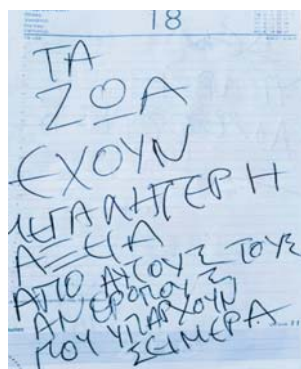 18
ΤΑ
ΖΩΑ
ΕΧΟΥΝ
ΜΕΓΑΛΗΤΕΡΗ
ΑΞΕΙΑ
ΑΠΟ ΑΥΤΟΥΣ ΤΟΥΣ
ΑΝΘΡΟΠΟΥΣ
ΠΟΥ ΥΠΑΡΧΟΥΝ
ΣΕΙΜΕΡΑ